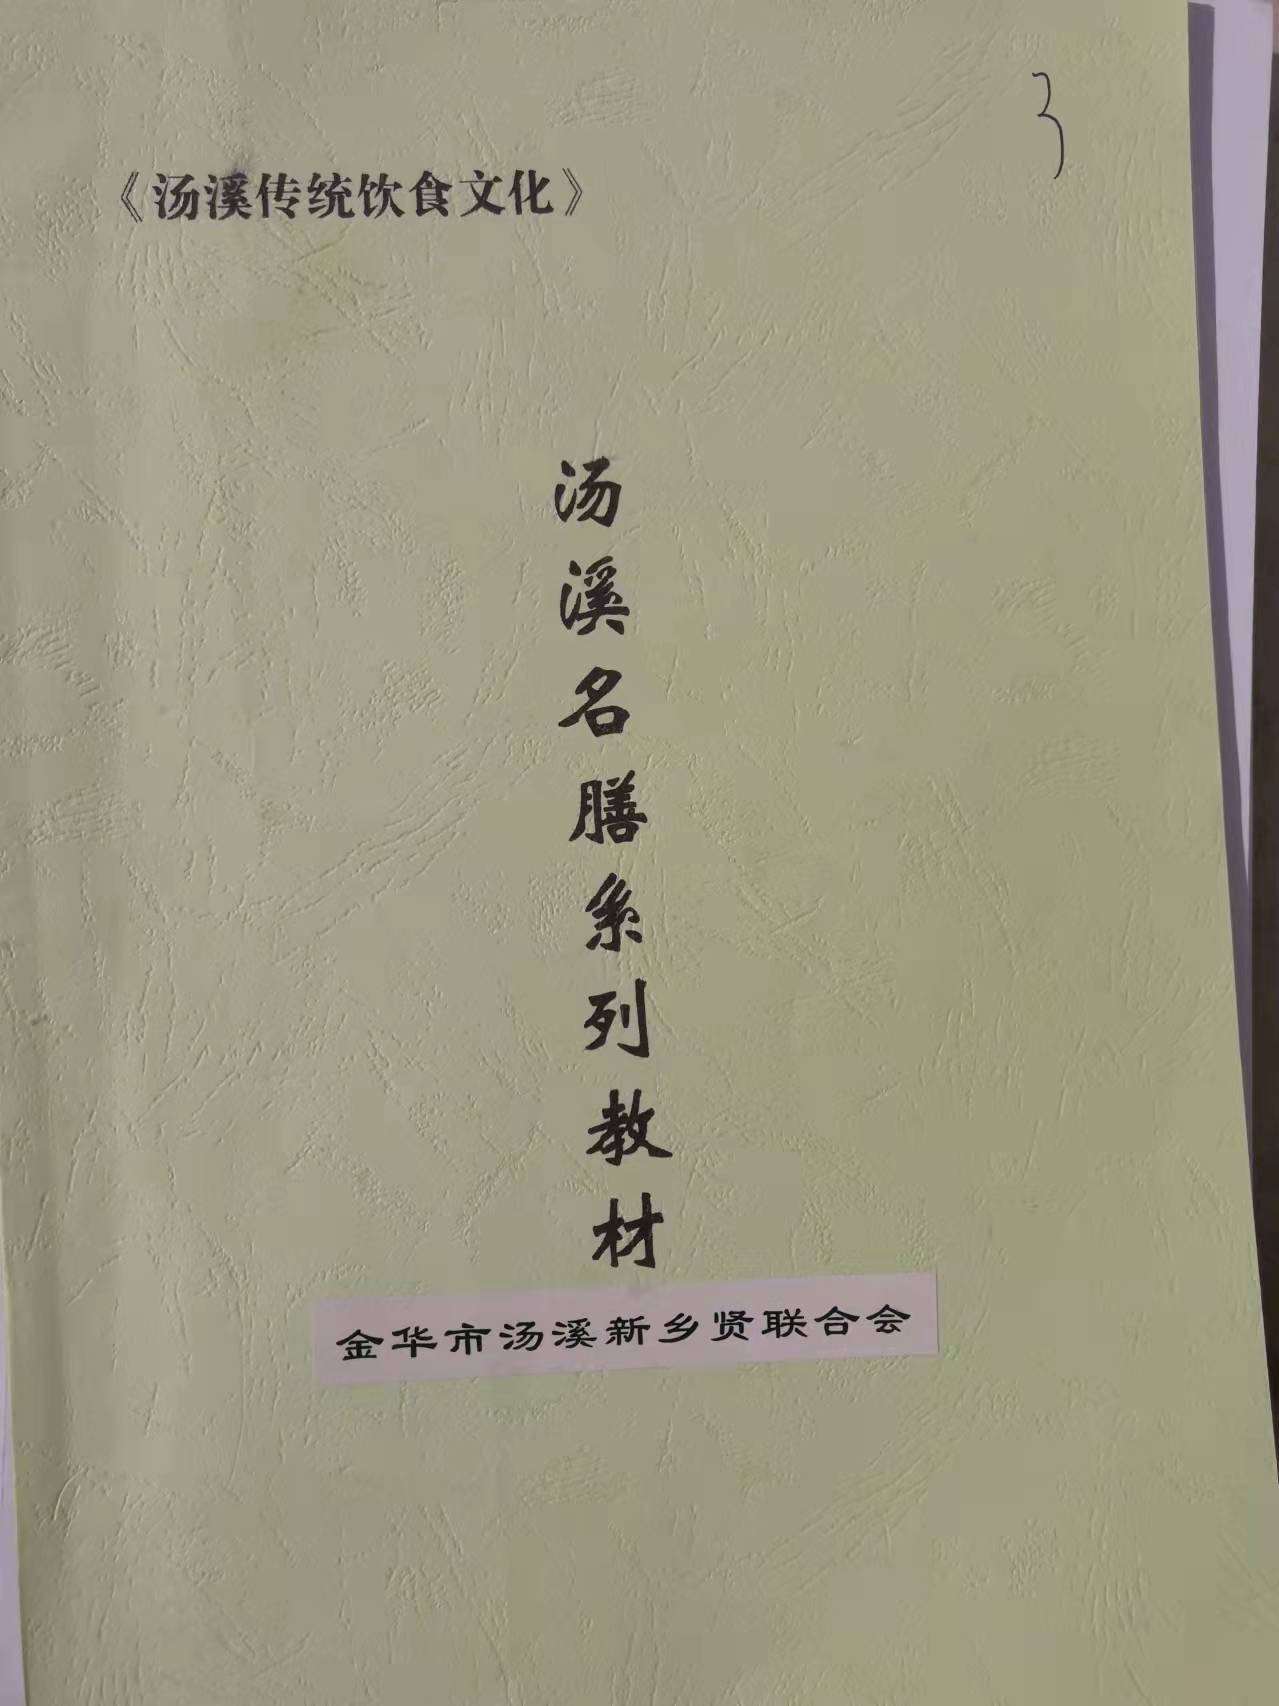 3
《汤溪传统饮食文化》
汤溪名膳系列教材
金华市汤溪新乡贤联合会